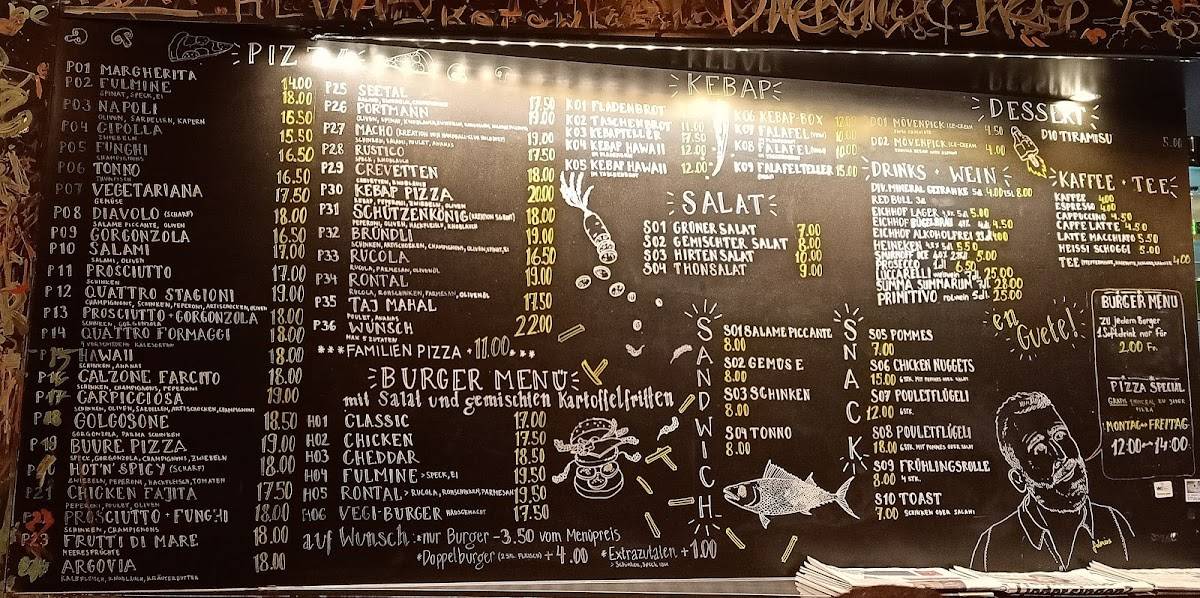 PIZZA
P01 MARGHERITA 14.00
P02 FULMINE 18.00
SPINAT, SPECK, EI
P03 NAPOLI 16.50
OLIVEN, SARDELLEN, KAPERN
P04 CIPOLLA 15.50
ZWIEBELN
P05 FUNGHI 16.50
CHAMPIGNONS
P06 TONNO 16.50
THUNFISCH
P07 VEGETARIANA 17.50
GEMÜSE
P08 DIAVOLO (SCHARF) 18.00
SALAME PICCANTE, OLIVEN
P09 GORGONZOLA 16.50
P10 SALAMI 17.00
SALAMI, OLIVEN
P11 PROSCIUTTO 17.00
SCHINKEN
P12 QUATTRO STAGIONI 19.00
CHAMPIGNONS, SCHINKEN, PEPERONI, ARTISCHOCKEN, OLIVEN
P13 PROSCIUTTO + GORGONZOLA 18.00
SCHINKEN, GORGONZOLA
P14 QUATTRO FORMAGGI 18.00
4 VERSCHIEDENE KÄSESORTEN
P15 HAWAII 18.00
SCHINKEN, ANANAS
CALZONE FARCITO 18.00
SCHINKEN, CHAMPIGNONS, PEPERONI
P17 CARPICCIOSA 19.00
SCHINKEN, OLIVEN, SARDELLEN, ARTISCHOCKEN, CHAMPIGNONS
P18 GOLGOSONE 18.50
GORGONZOLA, PARMA SCHINKEN
P19 BUURE PIZZA 19.00
SPECK, GORGONZOLA, CHAMPIGNONS, ZWIEBELN
HOT'N'SPICY (SCHARF) 18.00
ZWIEBELN, PEPERONI, HACKFLEISCH, TOMATEN
P21 CHICKEN FAJITA 17.50
PEPERONI, POULET, OLIVEN
PROSCIUTTO + FUNGHI 18.00
SCHINKEN, CHAMPIGNONS
P23 FRUTTI DI MARE 18.00
MEERESFRÜCHTE
ARGOVIA 18.00
KALBFLEISCH, KNOBLAUCH, KRÄUTERBUTTER
P25 SEETAL 17.50
P26 PORTMANN 19.00
P27 MACHO 18.00
SCHINKEN, SALAMI, POULET, ANANAS
P28 RUSTICO 17.50
SPECK, KNOBLAUCH
P29 CREVETTEN 18.00
P30 KEBAP PIZZA 20.00
P31 SCHÜTZENKÖNIG 18.00
P32 BRÜNDLI 19.00
SCHINKEN, ARTISCHOCKEN, CHAMPIGNONS, OLIVEN, SPINAT, EI
P33 RUCOLA 16.50
RUCOLA, PARMESAN, OLIVENÖL
P34 RONTAL 19.00
RUCOLA, ROHSCHINKEN, PARMESAN, OLIVENÖL
P35 TAJ MAHAL 17.50
POULET, ANANAS
P36 WUNSCH 22.00
MAX 5 ZUTATEN
***FAMILIEN PIZZA + 11.00***
BURGER MENÜ
mit Salat und gemischten Kartoffelfritten
H01 CLASSIC 17.00
H02 CHICKEN 17.50
H03 CHEDDAR 18.50
H04 FULMINE > SPECK, EI 19.50
H05 RONTAL > RUCOLA, ROHSCHINKEN, PARMESAN 19.50
H06 VEGI-BURGER HAUSGEMACHT 17.50
auf Wunsch: *nur Burger -3.50 vom Menüpreis
*Doppelburger (2 STK. FLEISCH) + 4.00 *Extrazutaten + 1.00
> SCHINKEN, SPECK USW
KEBAP
K01 FLADENBROT
K02 TASCHENBROT 11.00
K03 KEBAPTELLER 17.50
K04 KEBAP HAWAII 12.00
K05 KEBAP HAWAII 12.00
IM TASCHENBROT
K06 KEBAP-BOX 12.00
K07 FALAFEL 10.00
K08 FALAFEL 10.00
K09 FALAFELTELLER 15.00
SALAT
S01 GRÜNER SALAT 7.00
S02 GEMISCHTER SALAT 8.00
S03 HIRTEN SALAT 10.00
S04 THONSALAT 9.00
SANDWICH
S01 SALAME PICCANTE
8.00
S02 GEMÜSE
8.00
S03 SCHINKEN
8.00
S04 TONNO
8.00
SNACK
S05 POMMES
7.00
S06 CHICKEN NUGGETS
15.00 6 STK. MIT POMMES ODER SALAT
S07 POULETFLÜGELI
12.00 6 STK.
S08 POULETFLÜGELI
18.00 6 STK. MIT POMMES ODER SALAT
S09 FRÜHLINGSROLLE
8.00 4 STK.
S10 TOAST
7.00 SCHINKEN ODER SALAMI
DESSERT
D01 MÖVENPICK ICE-CREAM 4.50
D02 MÖVENPICK ICE-CREAM 4.00
D10 TIRAMISU 5.00
DRINKS + WEIN
DIV. MINERAL GETRÄNKE 5dl 4.00 1.5L 8.00
RED BULL
EICHHOF LAGER 5.00
EICHHOF BÜGELBRÄU 4.50
EICHHOF ALKOHOLFREI 4.00
HEINEKEN 5.50
SMIRNOFF ICE
PROSECCO 6.50
LUCCARELLI 25.00
SUMMA SUMMARUM 28.00
PRIMITIVO 25.00
KAFFEE + TEE
KAFFEE 4.00
ESPRESSO 4.00
CAPPUCCINO 4.50
CAFFE LATTE 4.50
LATTE MACCHIATO 5.50
HEISSI SCHOGGI 5.00
TEE 4.00
en Guete!
BURGER MENÜ
ZU jedem Burger
1 Softdrink nur für
2.00 Fr.
PIZZA SPECIAL
MONTAG - FREITAG
12:00 - 14:00